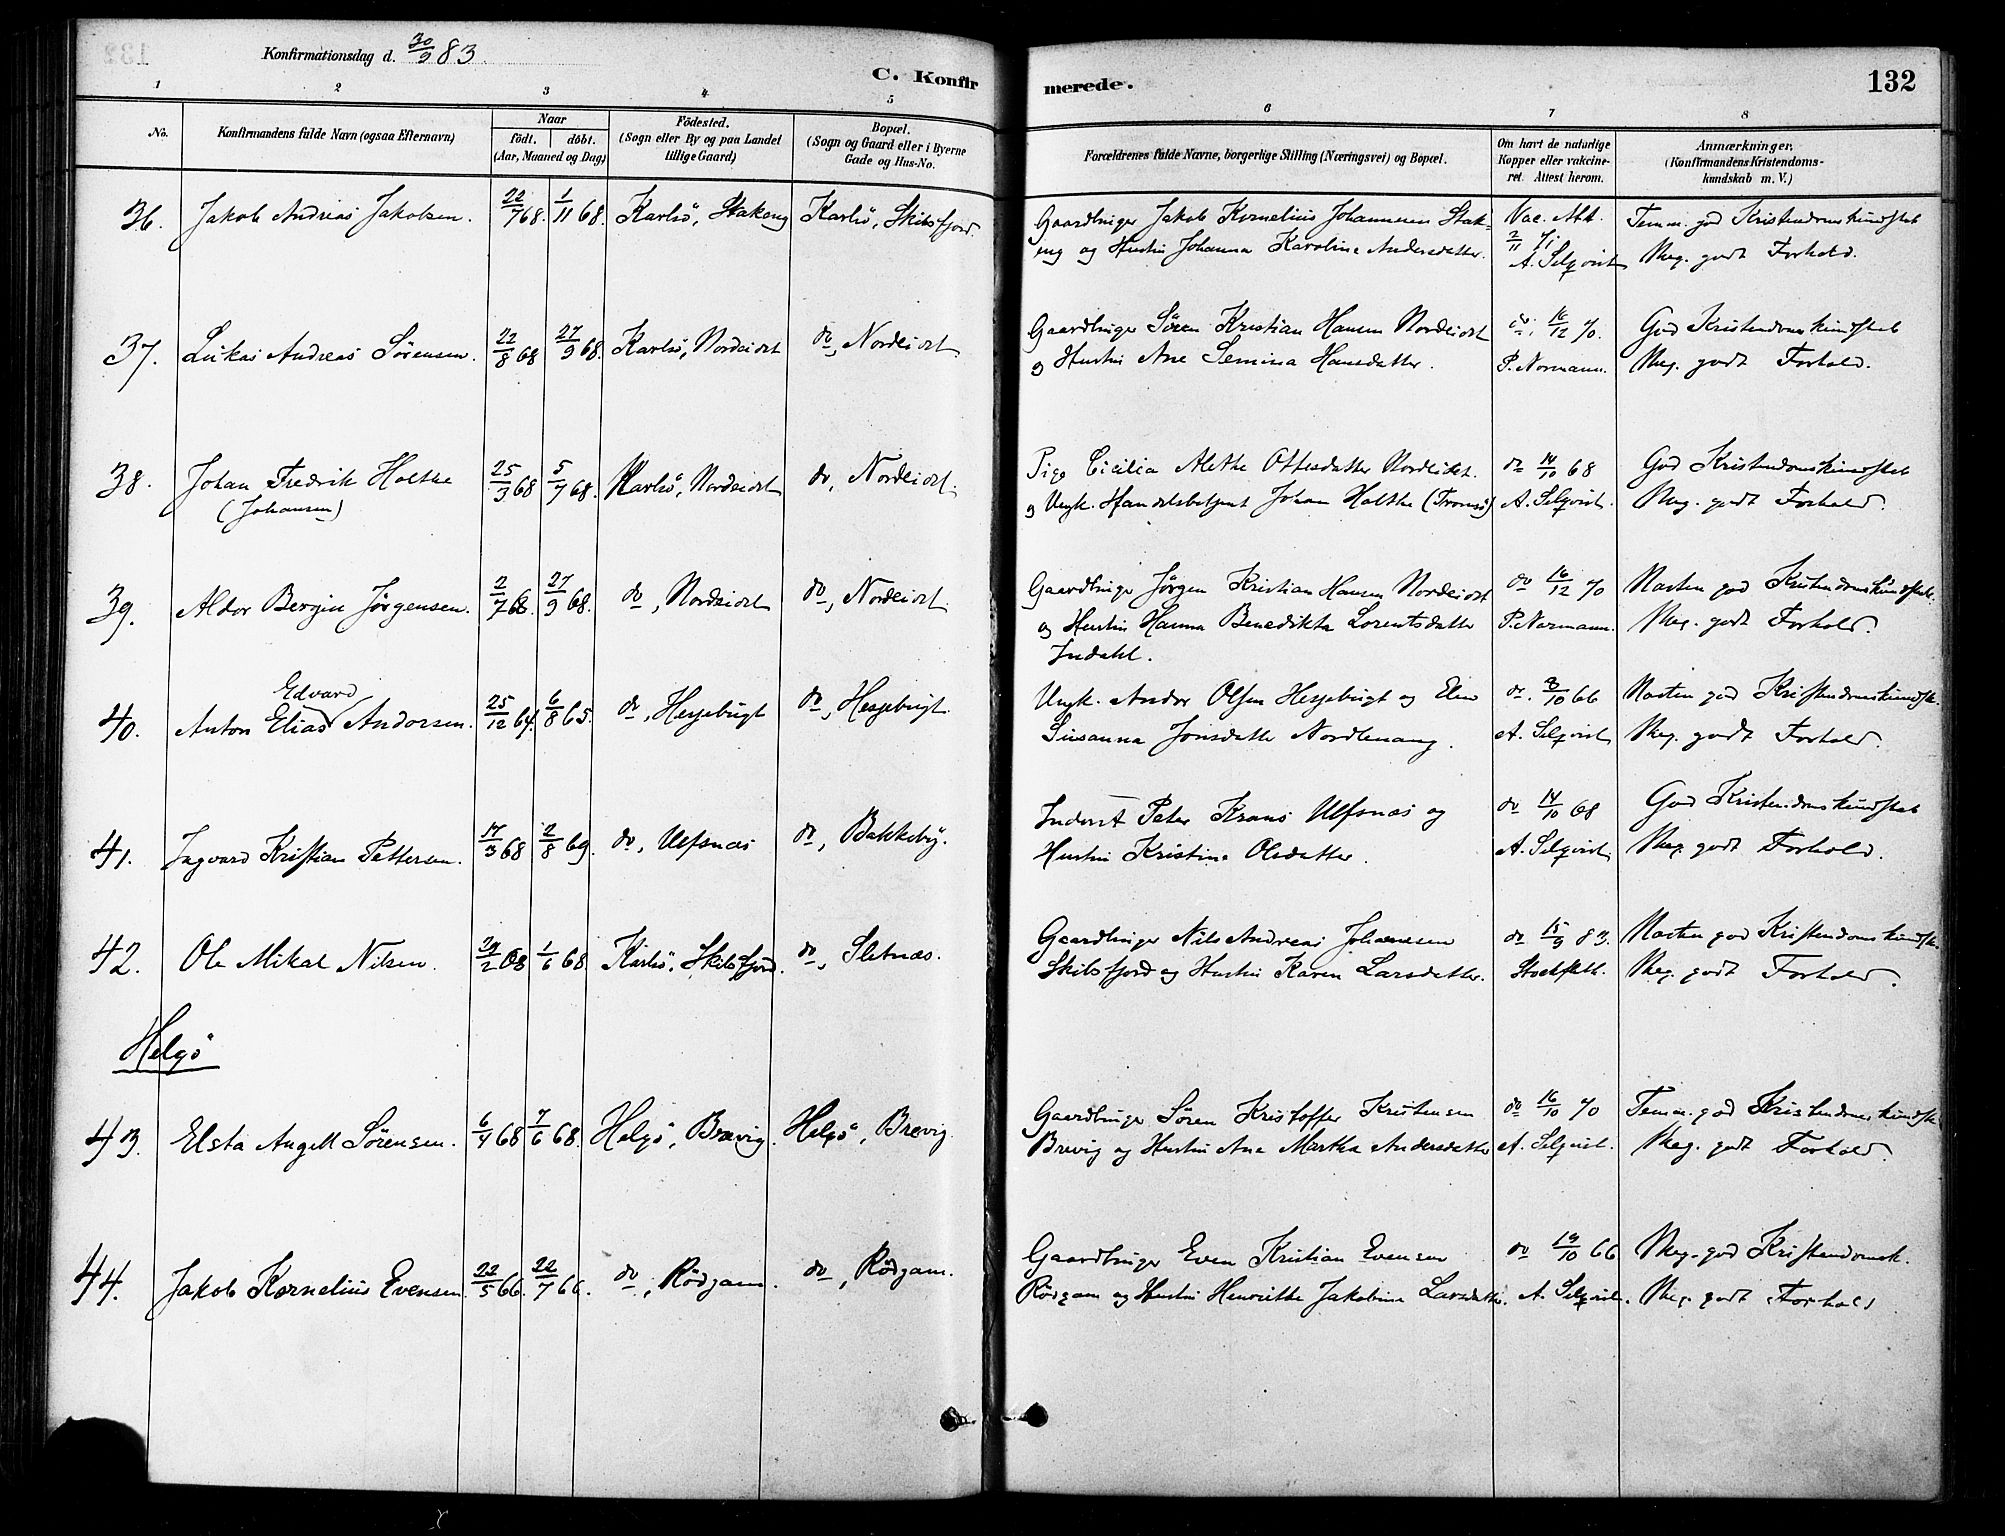 Konfirmationsdag d. 30/9 83.
C. Konfir
merede.
132
1 2 3 4 5 6 7 8
No.
Konfirmandens fulde Navn (ogsaa Efternavn)
Naar
födt. döbt.
(Aar, Maaned og Dag)
Födested.
(Sogn eller By og paa Landet
tillige Gaard)
Bopæl.
(Sogn og Gaard eller i Byerne
Gade og Hus-No.
Forældrenes fulde Navne, borgerlige Stilling (Næringsvei) og Bopæl.
Om havt de naturlige
Kopper eller vakcine-
ret. Attest herom.
Anmærkninger.
(Konfirmandens Kristendoms-
kundskab m. V.)
36. Jakob Andreas Jakobsen. 22/7 68. 1/11 68. Karlsö, Stakeng Karlsö, Skibsfjord.
Gaardbruger Jakob Kornelius Johannesen Stak-
eng og Hustru Johanna Karoline Andersdatter.
Vac. Att.
2/11 71
A. Selqvist
Temm. god Kristendomskundskab
Meg. godt Forhold.
37. Lukas Andreas Sörensen. 22/8 68 27/9 68. Karlsö, Nordeidet do, Nordeidet
Gaardbruger Sören Kristian Hansen Nordeidet
og Hustru Ane Semina Hansdatter.
do. 16/12 70.
P. Normann.
God Kristendomskundskab
Meg. godt Forhold.
38. Johan Fredrik Holtke
(Johansen)
25/3 68 5/7 68. Karlsö, Nordeidet do, Nordeidet.
Pige Cicilia Alethe Ottesdatter Nordeidet.
og Ungk. Handelsbetjent Johan Holthe (Tromsö)
do 14/10 68
A. Selqvist.
God Kristendomskundskab
Meg. godt Forhold.
39. Aldor Bergin Jörgensen. 2/7 68. 27/9 68. do, Nordeidet do, Nordeidet
Gaardbruger Jörgen Kristian Hansen Nordeidet
og Hustru Hanna Benedikta Lorentsdatter
Indahl.
do 16/12 70
P. Normann.
Næsten god Kristendomskundskab.
Meg. godt Forhold.
Edvard
40. Anton Elias Andorsen. 25/12 64. 6/8 65. do, Hessjebugt do, Hessjebugt.
Ungk. Andor Olsen Hessjebugt og Elen
Susanna Jonsdatter Nordlenang.
do. 8/10 66
A. Selqvist
Næsten god Kristendomskundsk.
Meg. godt Forhold.
41. Ingvard Kristian Pettersen. 17/3 68 2/8 69. do, Ulfsnæs do, Bakkeby.
Inderst Peter Krans Ulfsnæs og
Hustru Kristine Olsdatter.
do 14/10 68
A. Selqvist
God Kristendomskundskab
Meg. godt Forhold.
42. Ole Mikal Nilsen. 29/2 68 1/6 68 Karlsö, Skibsfjord. do, Sletnæs.
Gaardbruger Nils Andreas Johannesen
Skibsfjord og Hustru Karen Larsdatter.
do 15/9 83.
Stockfleth.
Næsten god Kristendomskundsk.
Meg. godt Forhold.
Helgö
43. Elsta Angell Sörensen. 6/4 68 7/6 68. Helgö, Brævig. Helgö, Brevig.
Gaardbruger Sören Kristoffer Kristensen
Brevig og Hustru Ane Martha Andersdatter
do 16/10 70
A. Selqvist.
Temm. god Kristendomskundsk.
Meg. godt Forhold.
44. Jakob Kornelius Evensen 22/5 66. 22/7 66. do, Rödgam. do, Rödgam.
Gaardbruger Even Kristian Evensen
Rödgam og Hustru Henrikke Jakobine Larsdatter.
do 19/10 66
A. Selqvist.
Meg. god Kristendomsk.
Meg. godt Forhold